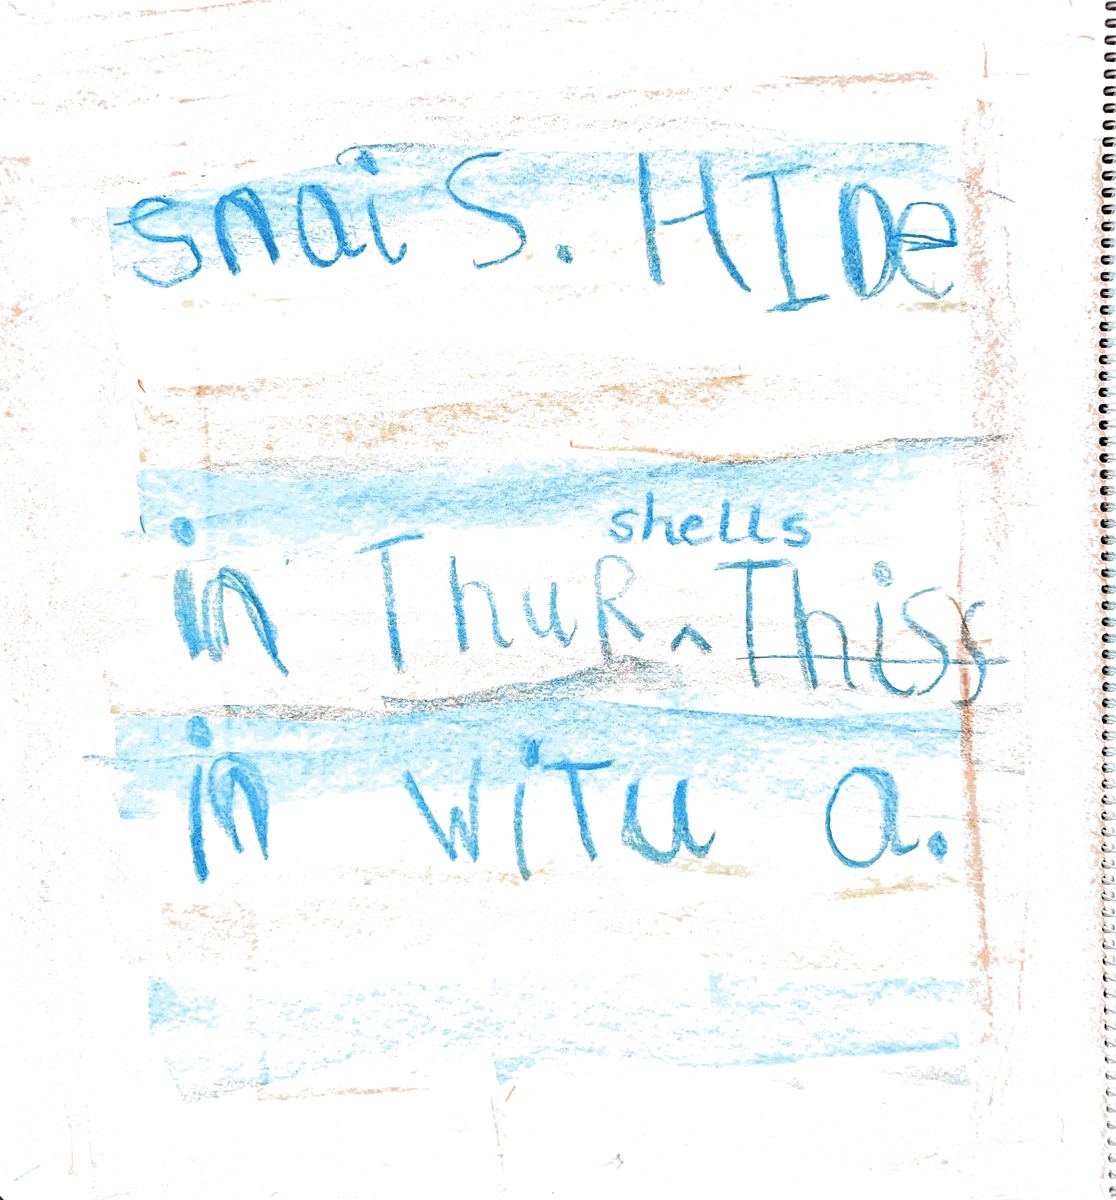 snaiS. HIDe
shells
in ThuR ^ Thiss
in wiTu a.